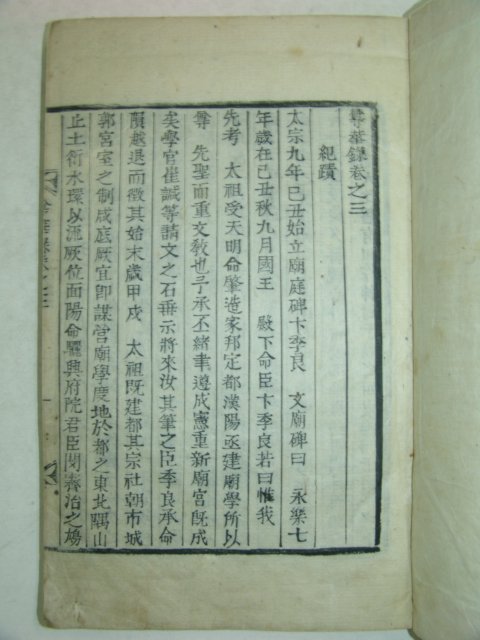 尊華錄卷之三
紀蹟
太宗九年己丑始立廟庭碑卞季良 文廟碑曰 永樂七
年歲在己丑秋九月國王 殿下命臣卞季良若曰惟我
先考 太祖受天明命肇造家邦定都漢陽亟建廟學所以
尊 先聖而重文敎也予承丕緖聿遵成憲重新廟宮旣成
矣學官崔諴等請文之石垂示將來汝其筆之臣季良承命
隕越退而徵其始末歲甲戌 太祖旣建都其宗社朝市城
郭宮室之制咸底厥宜卽謀營廟學度地於都之東北隅山
止土衍水環以流厥位面陽命驪興府院君臣閔霽治之鳩